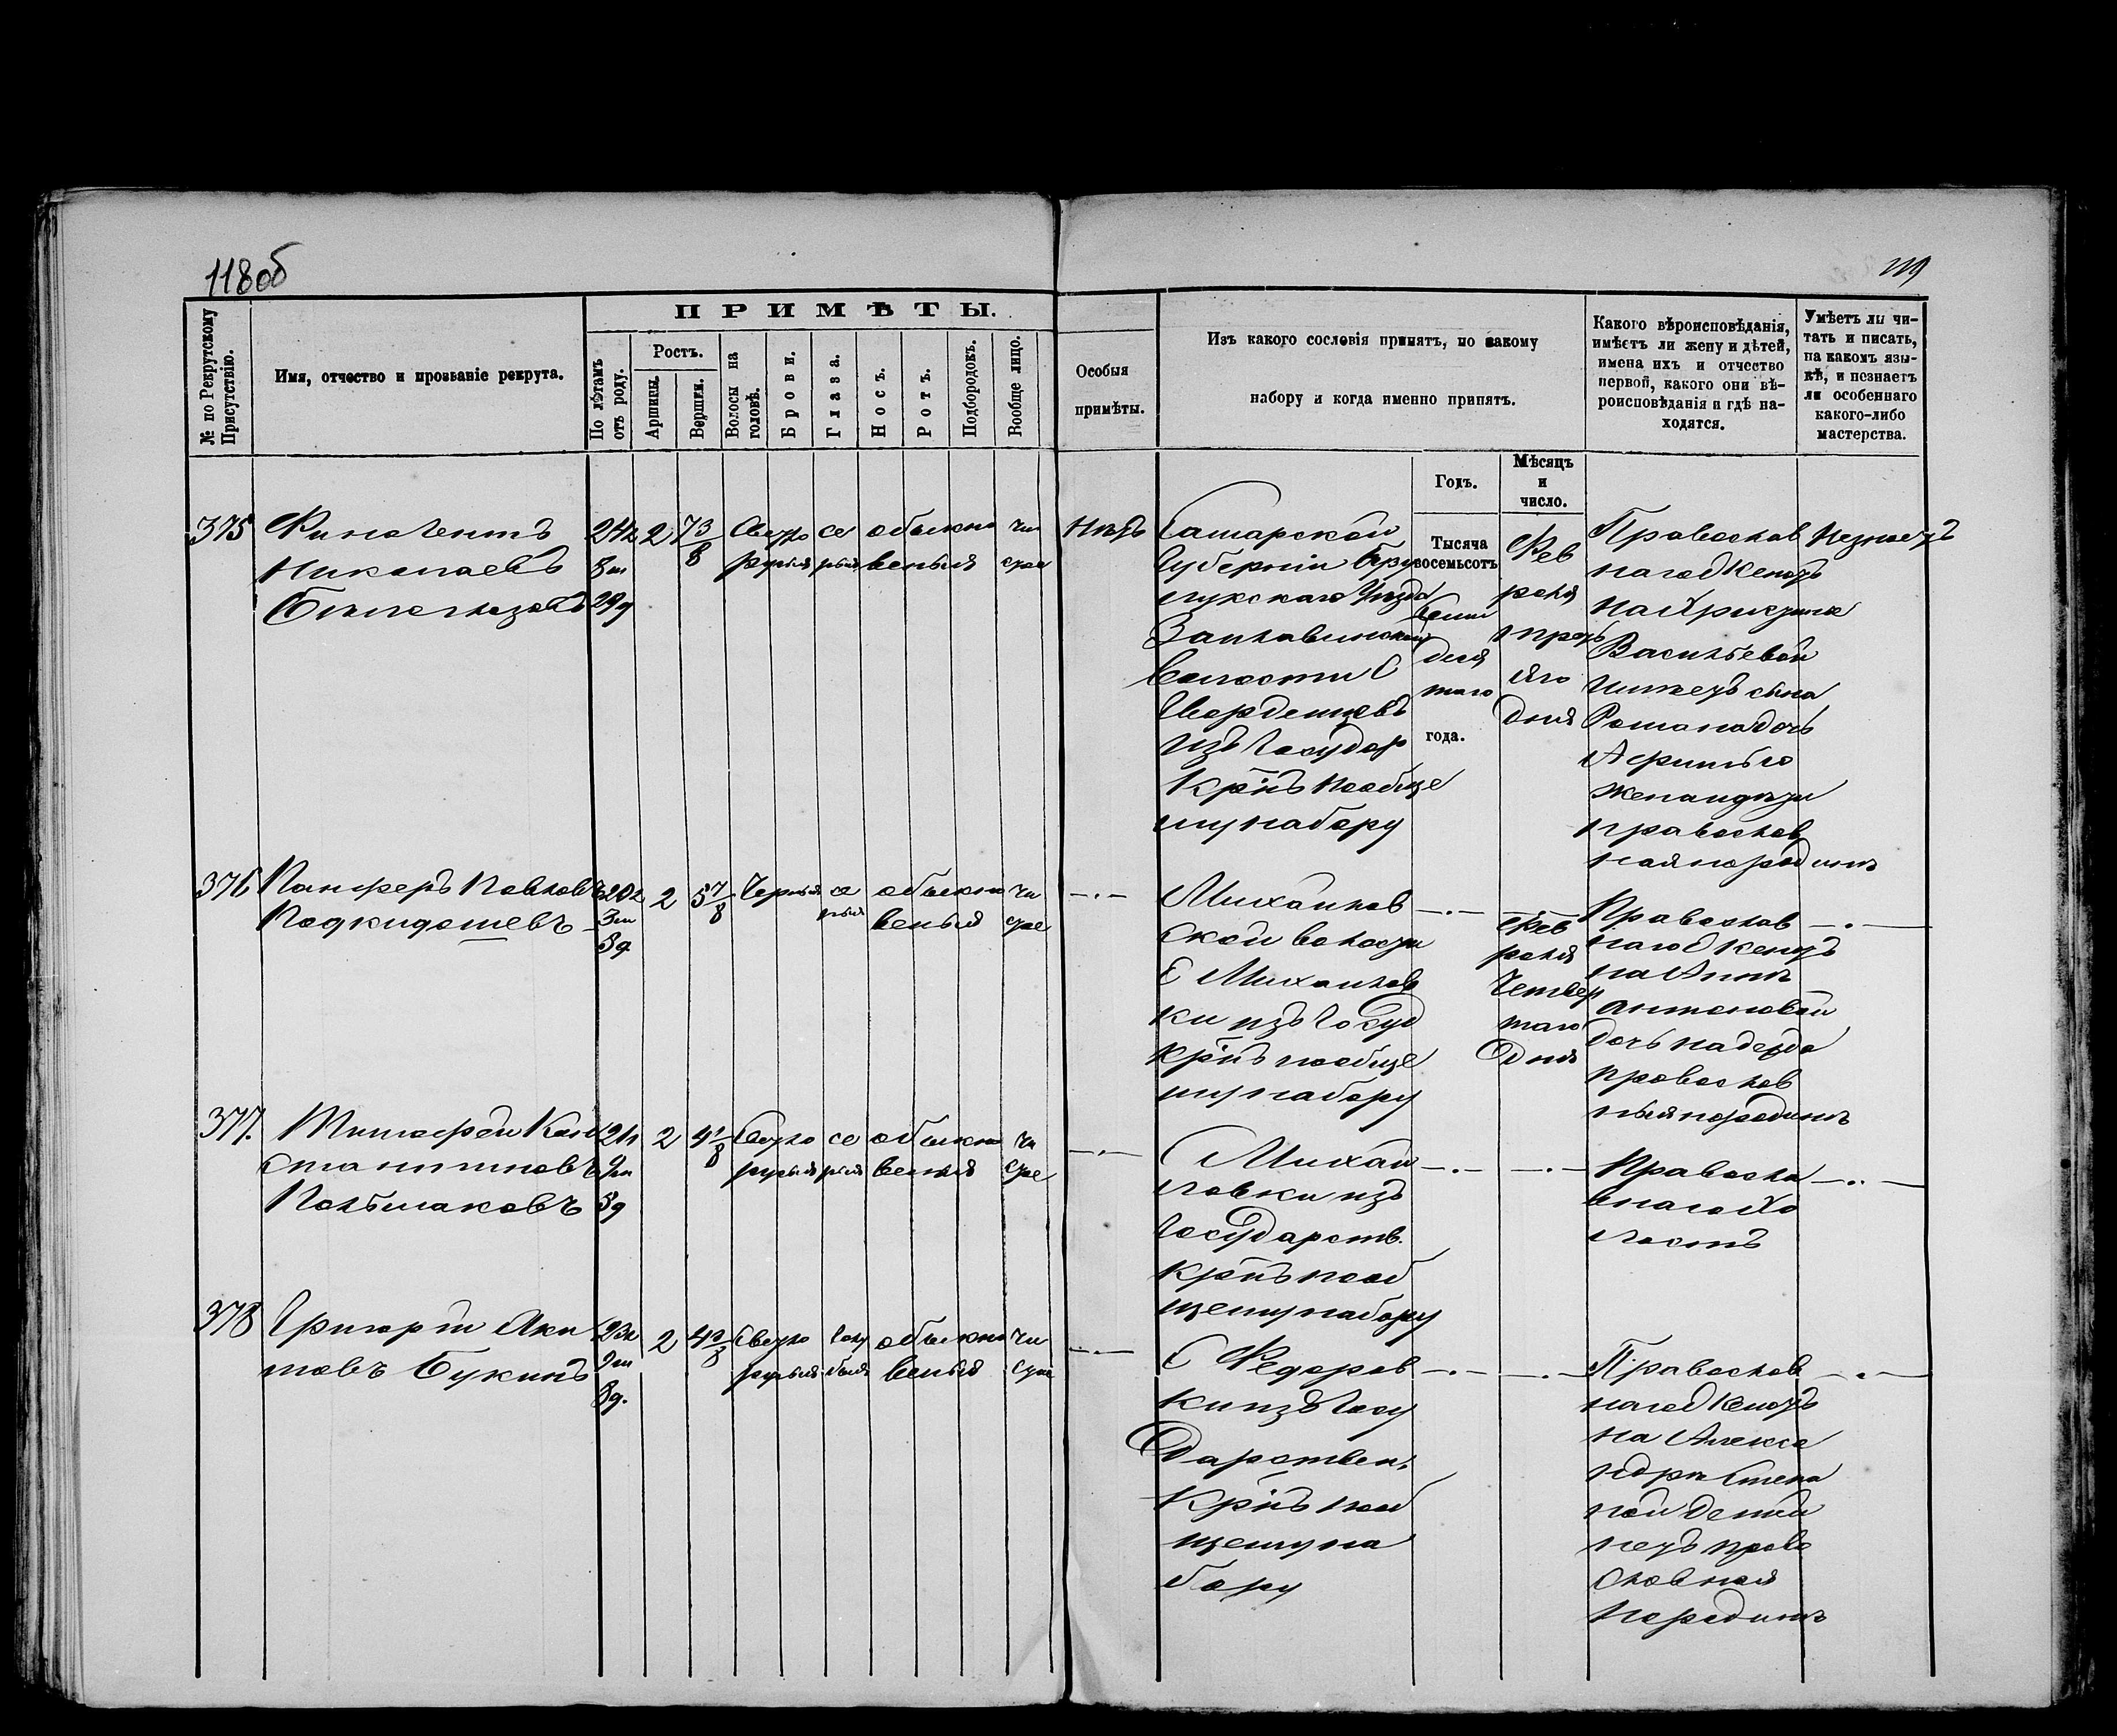 118 об
119
№ по Рекрутскому Присутствію.
Имя, отчество и прозваніе рекрута.
ПРИМѢТЫ.
По лѣтамъ отъ роду.
Ростъ.
Аршины.
Вершки.
Волосы на головѣ.
Брови.
Глаза.
Носъ.
Ротъ.
Подбородокъ.
Вообще лицо.
Особыя
примѣты.
Изъ какого сословія принятъ, по какому
набору и когда именно принятъ.
Какого вѣроисповѣданія,
имѣетъ ли жену и дѣтей,
имена ихъ и отчество
первой, какого они вѣ-
роисповѣданія и гдѣ на-
ходятся.
Умѣетъ ли чи-
тать и писать,
на какомъ язы-
кѣ, и незнаетъ
ли особеннаго
какого-либо
мастерства.
Годъ.
Мѣсяцъ
и
число.
375
Финогентъ
Николаевъ
Бѣлоглазовъ
24л
8м
29д
2
7 3/8
Свѣтло
русыя
се
рыя
обыкно
веныя
чи
стое
Нѣтъ
Самарской
Губерніи Бузу
лукскаго Уѣзда
Заплавинской
Волости С
Гвардейцевъ
изъ Государ
Кр̃нъ пообще
му набору
Тысяча
восемьсотъ
семь
деся
таго
года.
Фев
раля
треть
яго
Дня
Православ
наго женатъ
на Ириньѣ
Васильевой
имѣетъ сына
Романа дочь
Афимью
жена и дѣти
православ
ная на родинѣ
Незнаетъ
376
Панферъ Павловъ
Подкидошевъ
20л
3м
8д
2
5 7/8
Черныя
се
рыя
обыкно
веныя
чи
стое
—·—
Михайлов
ской волости
С Михайлов
ки изъ Госуд
кр̃нъ пообще
му набору
—·—
Фев
раля
Четвер
таго
Дня
Православ
наго женатъ
на Аннѣ
Антоновой
дочь Надежда
православ
ныя на родинѣ
—·—
377.
Тимофей Кон
стантиновъ
Польшаковъ
21л
9м
5д
2
4 1/8
Свѣтло
русыя
се
рыя
обыкно
веныя
чи
стое
—·—
С Михай
ловки изъ
Государств.
кр̃нъ пооб
щему набору
—·—
—·—
Правосла
внаго Хо
лостъ
—·—
378
Григорій Аки
мовъ Букинъ
23л
9м
8д.
2
4 3/8
Свѣтло
русыя
Голу
быя
обыкно
веныя
чи
стое
—·—
С Федоров
ки изъ Госу
Дарствен.
Кр̃нъ пооб
щему на
бору
—·—
—·—
Православ
наго женатъ
на Алекса
ндрѣ Степа
ной детей
нетъ право
славная
народинѣ
—·—